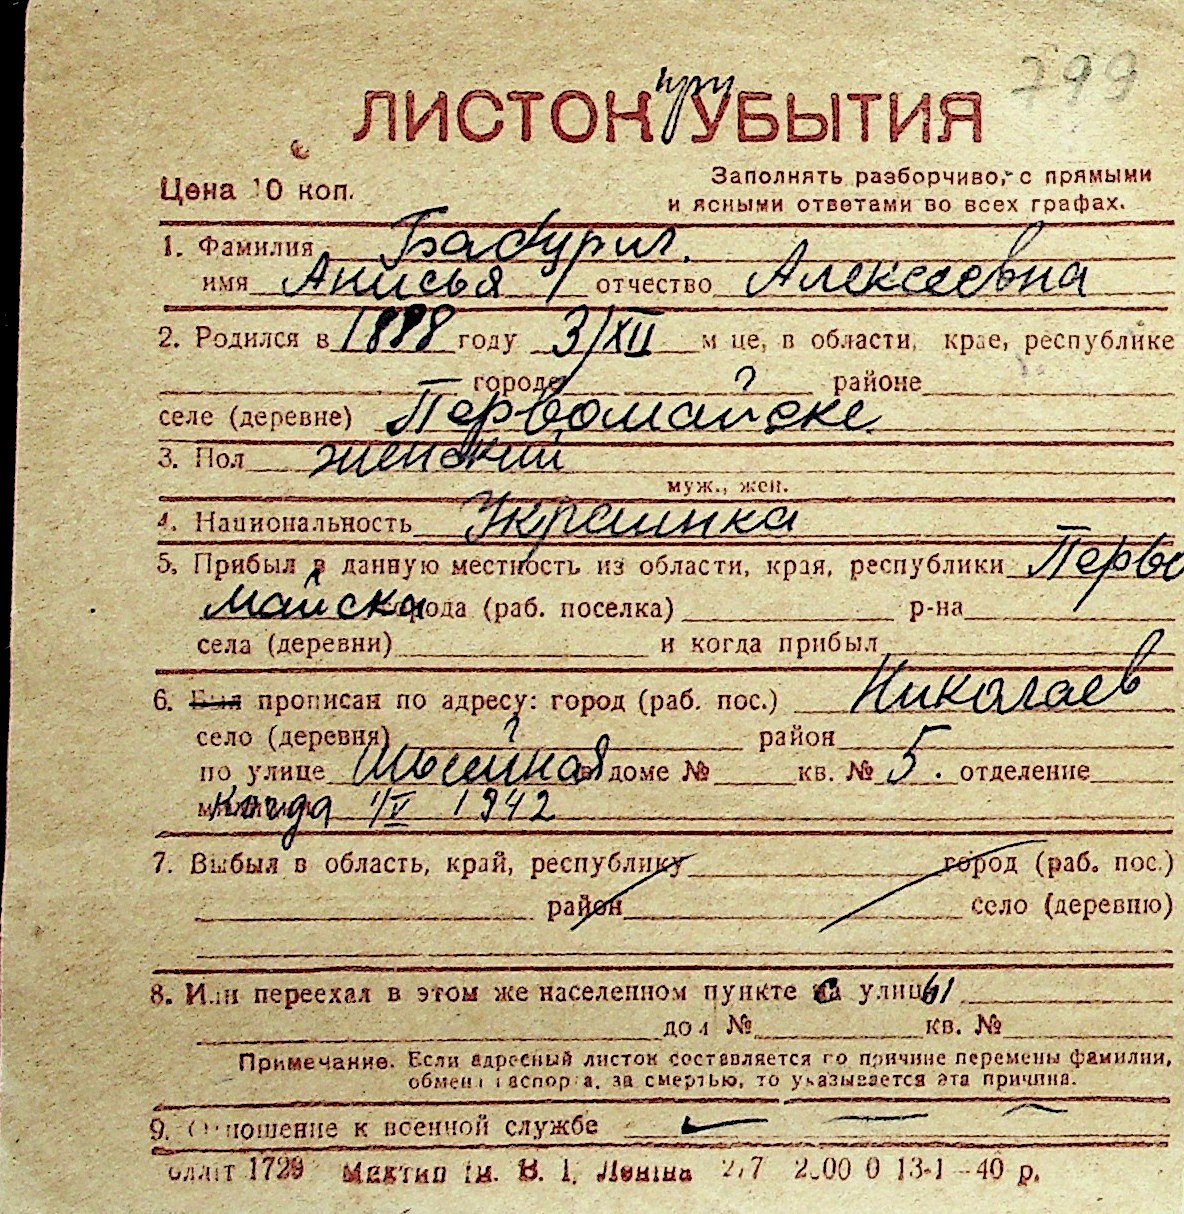 799
ЛИСТОК при УБЫТИЯ
Цена 10 коп.
Заполнять разборчиво, с прямыми
и ясными ответами во всех графах.
1. Фамилия
имя Анисья отчество Алексеевна
2. Родился в 1888 году 3/XII м це, в области, крае, республике
городе ? районе
селе (деревне) Первомайске
3. Пол женский
муж., жен.
4. Национальность Украинка
5. Прибыл в данную местность из области, края, республики Перво
майска города (раб. поселка) р-на
села (деревни) и когда прибыл
6. Был прописан по адресу: город (раб. пос.) Николаев
село (деревня) район
по улице в доме № кв. № 5. отделение
милиции Когда 1/V 1942
7. Выбыл в область, край, республику город (раб. пос.)
район село (деревню)
8. Или переехал в этом же населенном пункте с улицы
дом № кв. №
Примечание. Если адресный листок составляется по причине перемены фамилии,
обмена паспорта, за смертью, то указывается эта причина.
9. Отношение к военной службе
1729 им. В. І. Леніна 13-1-40 р.